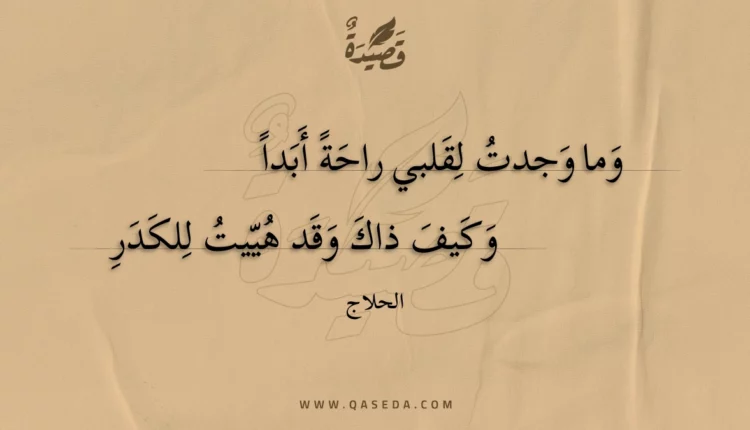 قَصِيدَةٌ
وَما وَجدتُ لِقَلبي راحَةً أَبَداً
وَكَيفَ ذاكَ وَقَد هُيّيتُ لِلكَدَرِ
الحلاج
WWW.QASEDA.COM